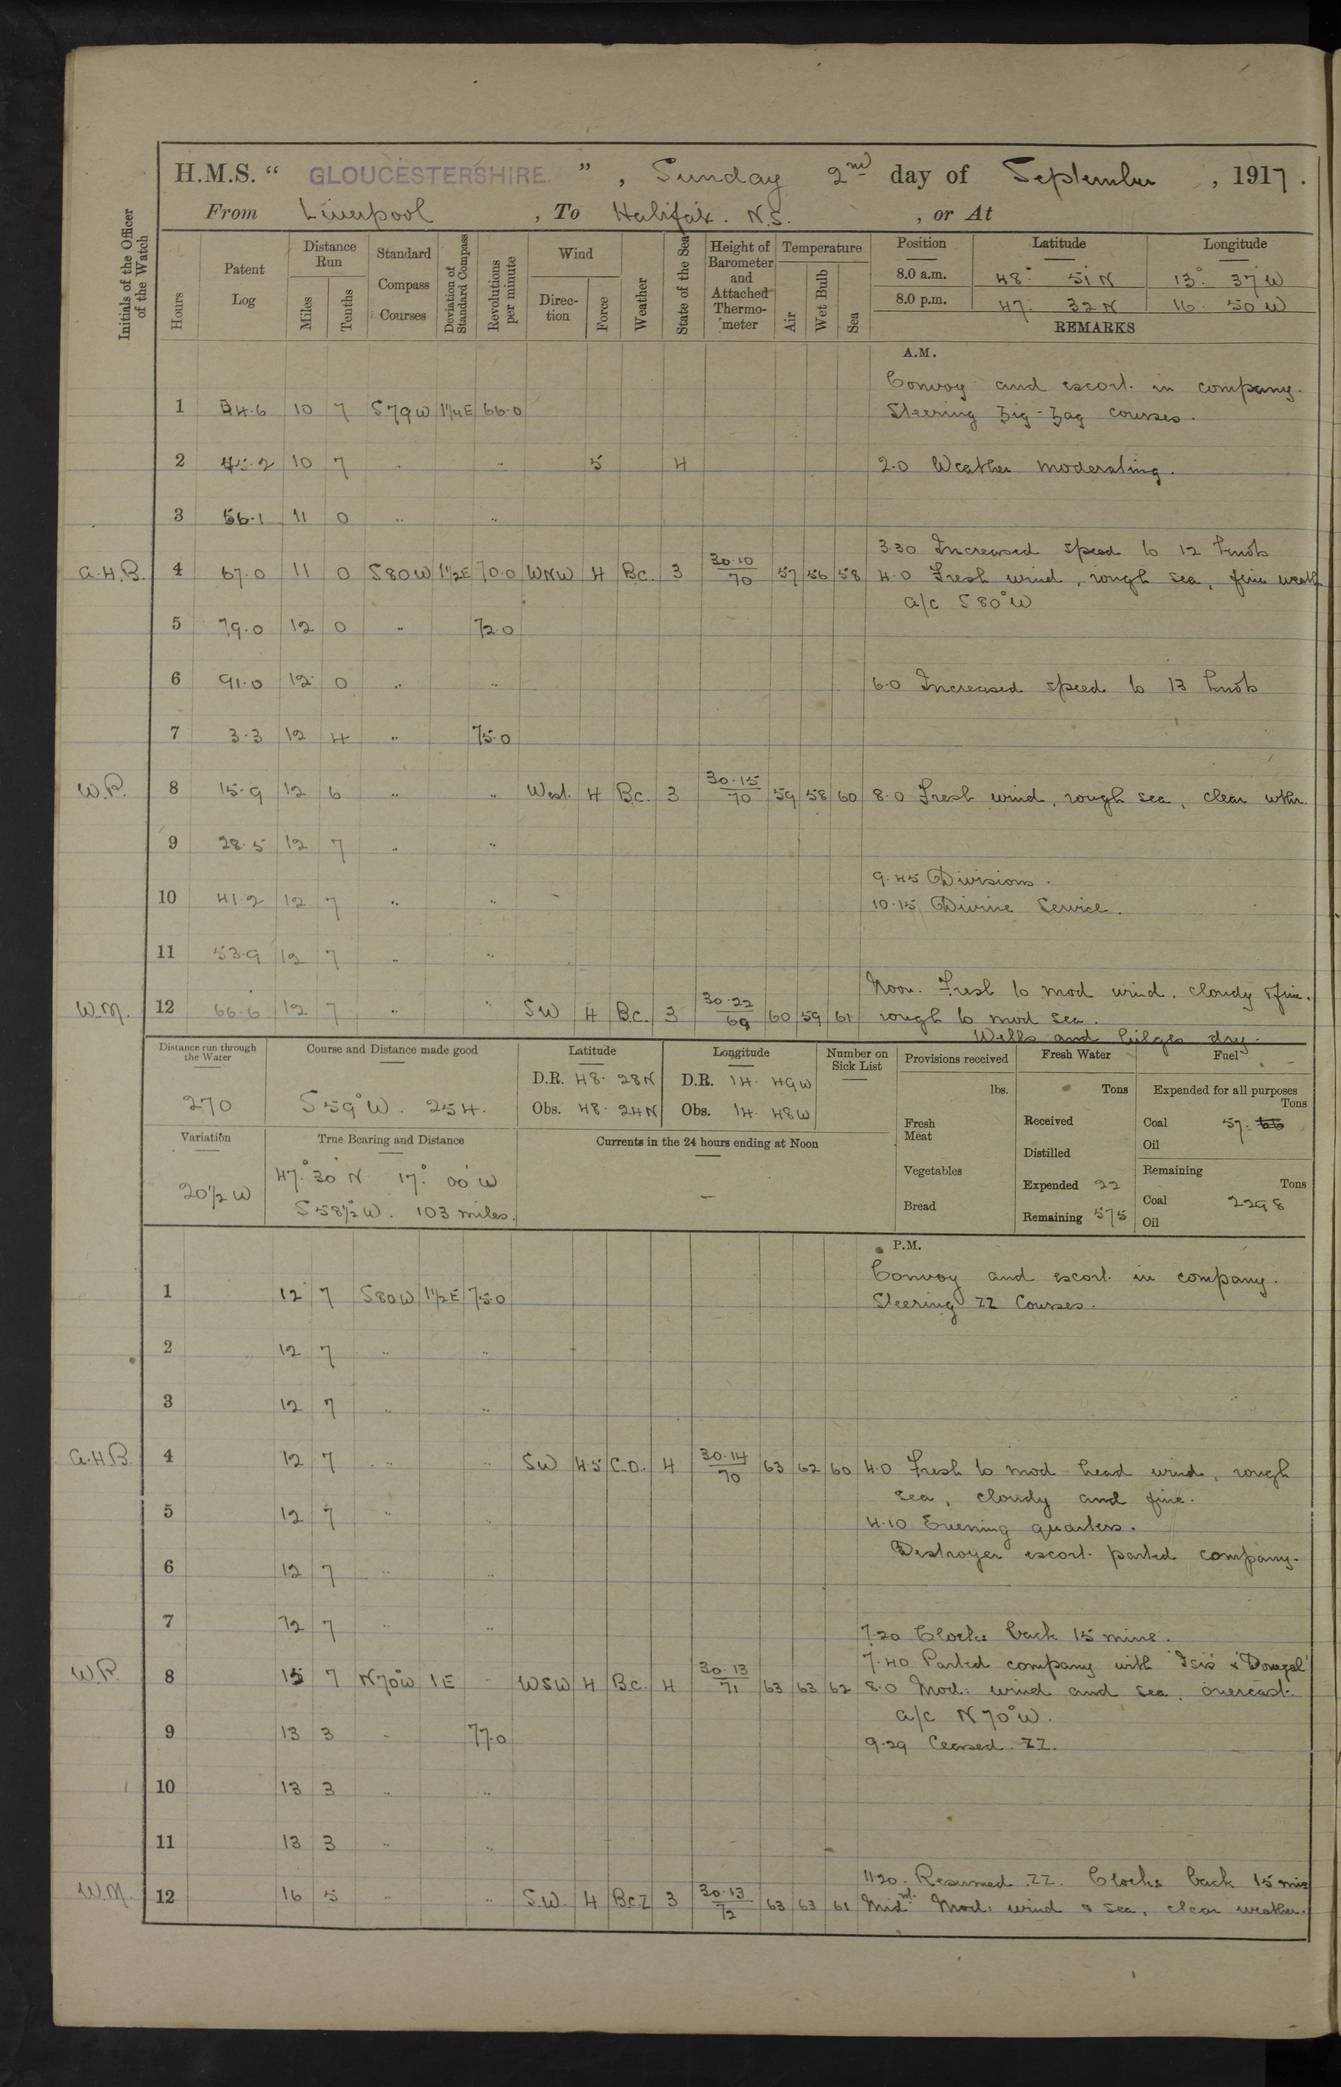 H.M.S. “ GLOUCESTERSHIRE. ” , Sunday 2nd day of September , 1917 .
From Liverpool , To Halifax. N.S. , or At
Initials of the Officer of the Watch
Hours
Patent Log
Distance Run
Miles
Tenths
Standard Compass Courses
Deviation of Standard Compass
Revolutions per minute
Wind
Direction
Force
Weather
State of the Sea
Height of Barometer and Attached Thermometer
Temperature
Air
Wet Bulb
Sea
Position Latitude Longitude
8.0 a.m. 48° 51 N 13° 37 W
8.0 p.m. 47. 32 N 16. 50 W
REMARKS
A.M.
Convoy and escort in company.
1 34.6 10 7 S79W 1¼E 66.0 Steering Zig-Zag courses.
2 45.2 10 7 .. .. 5 4 2.0 Weather moderating.
3 56.1 11 0 .. ..
3.30 Increased speed to 12 knots
A.H.B. 4 67.0 11 0 S80W 1½E 70.0 WNW 4 B.c. 3 30.10/70 57 56 58 4.0 Fresh wind, rough sea, fine weath
a/c S80°W
5 79.0 12 0 .. 72.0
6 91.0 12 0 .. .. 6.0 Increased speed to 13 knots
7 3.3 12 4 .. 75.0
W.P. 8 15.9 12 6 .. .. West. 4 B.c. 3 30.15/70 59 58 60 8.0 Fresh wind, rough sea, clear wthr.
9 28.5 12 7 .. ..
9.45 Divisions.
10 41.2 12 7 .. .. 10.15 Divine Service.
11 53.9 12 7 .. ..
Noon. Fresh to mod wind. cloudy & fine.
W.M. 12 66.6 12 7 .. .. SW 4 B.c. 3 30.22/69 60 59 61 rough to mod sea.
Wells and bilges dry.
Distance run through the Water
270
Course and Distance made good
S59°W. 254.
Latitude
D.R. 48. 28N
Obs. 48. 24N
Longitude
D.R. 14. 49W
Obs. 14. 48W
Number on Sick List
Variation
20½W
True Bearing and Distance
47°. 30' N 17°. 00' W
S58½°W. 103 miles.
Currents in the 24 hours ending at Noon
—
Provisions received
lbs.
Fresh Meat
Vegetables
Bread
Fresh Water
Tons
Received
Distilled
Expended 22
Remaining 575
Fuel
Expended for all purposes
Tons
Coal 57.
Oil
Remaining
Tons
Coal 2298
Oil
P.M.
Convoy and escort in company.
1 12 7 S80W 1½E 75.0 Steering ZZ Courses.
2 12 7 .. ..
3 12 7 .. ..
A.H.B. 4 12 7 .. .. SW 4.5 C.O. 4 30.14/70 63 62 60 4.0 Fresh to mod head wind, rough
sea, cloudy and fine.
5 12 7 .. ..
4.10 Evening quarters.
Destroyer escort parted company.
6 12 7 .. ..
7 12 7 .. .. 7.20 Clocks back 15 mins.
7.40 Parted company with 'Isis' & 'Donegal'
W.P. 8 15 7 N70W 1E .. WSW 4 B.c. 4 30.13/71 63 63 62 8.0 Mod: wind and sea, overcast.
a/c N70°W.
9 13 3 .. 77.0 9.29 Ceased ZZ.
10 13 3 .. ..
11 13 3 .. ..
11.20. Resumed ZZ. Clocks back 15 mis
W.M. 12 16 5 .. .. S.W. 4 B.c.Z 3 30.13/72 63 63 61 Midnt. Mod: wind & sea, clear weather.